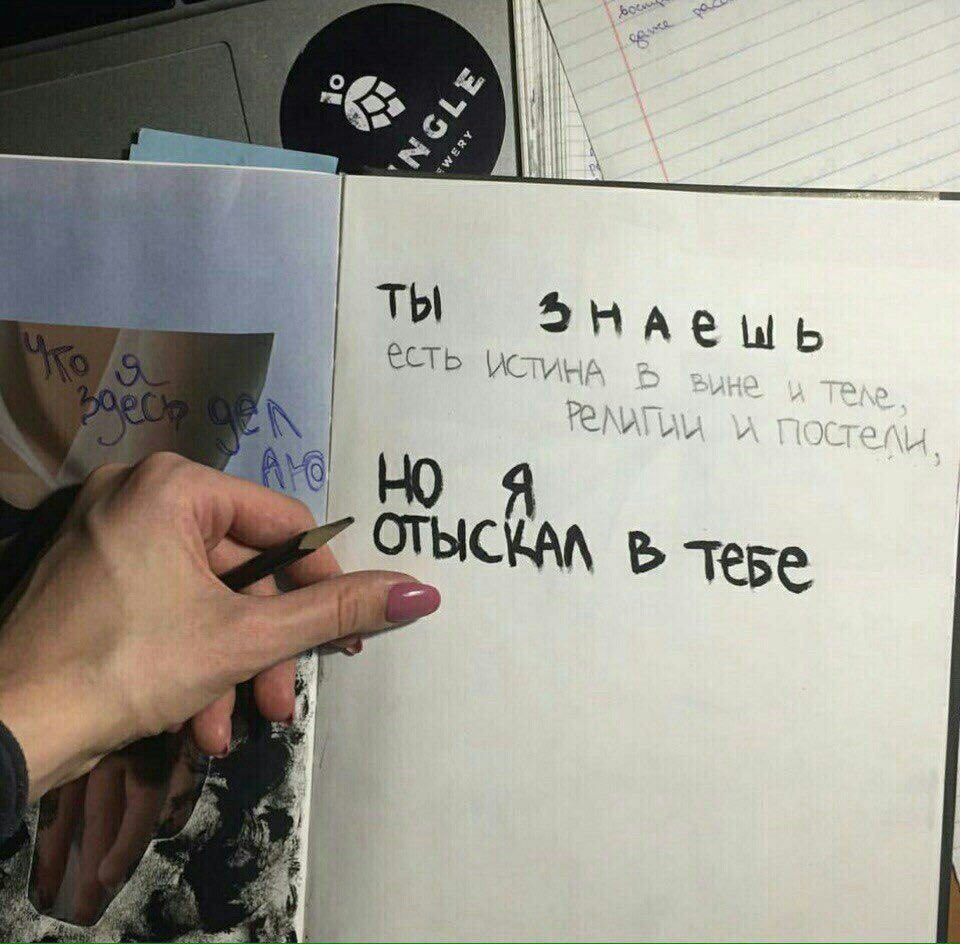 INGLE
воспр
даже расс
Что я
здесь дел
аю
ты знаешь
есть истина в вине и теле,
религии и постели,
но я
отыскал в тебе